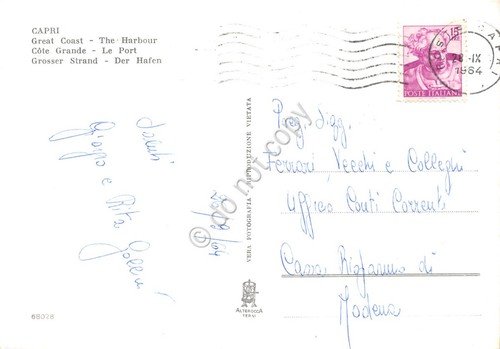 CAPRI
Great Coast - The Harbour
Côte Grande - Le Port
Grosser Strand - Der Hafen
15
POSTE ITALIANE
CAPRI
28-IX
1964
Saluti
Giorgio e Rita
28/9/64
do not copy
VERA FOTOGRAFIA - RIPRODUZIONE VIETATA
Preg. Sigg.
Ferrari, Vecchi e Colleghi
Ufficio Conti Correnti
Cassa Risparmio di
Modena
68028
ALTEROCCA
TERNI